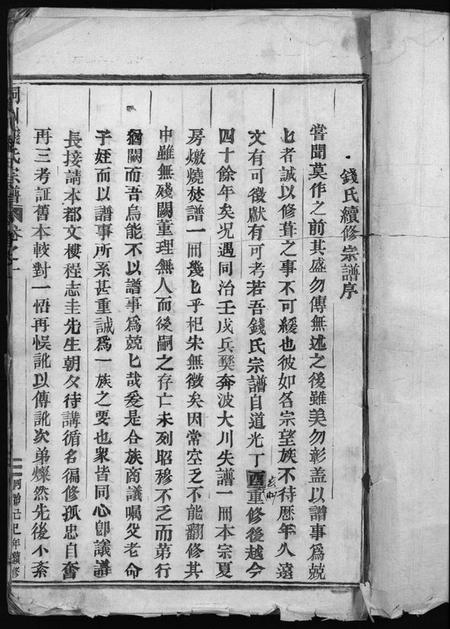 錢氏續修宗譜序
嘗聞莫作之前其盛勿傳無述之後雖美勿彰盖以譜事爲兢
匕者誠以修葺之事不可緩也彼如名宗望族不待歷年久遠
文有可徵獻有可考若吾錢氏宗譜自道光丁酉重修後越今
四十餘年矣况遇同治壬戌兵燹奔波大川失譜一冊本宗夏
房燬燒焚譜一冊幾匕乎杞朱無徵矣因常空乏不能翻修其
中雖無殘闕董理無人而後嗣之存亡未列昭穆不乏而第行
猶闕而吾烏能不以譜事爲兢匕哉爰是合族商議囑父老命
子姪而以譜事所系甚重誠爲一族之要也衆皆同心卽議譜
長接請本都文樓程志圭先生朝夕待講循名徧修孤忠自奮
再三考証舊本較對一悟再悞訛以傳訛次弟燦然先後不紊
錢氏宗譜
卷之一
同治己巳年續修